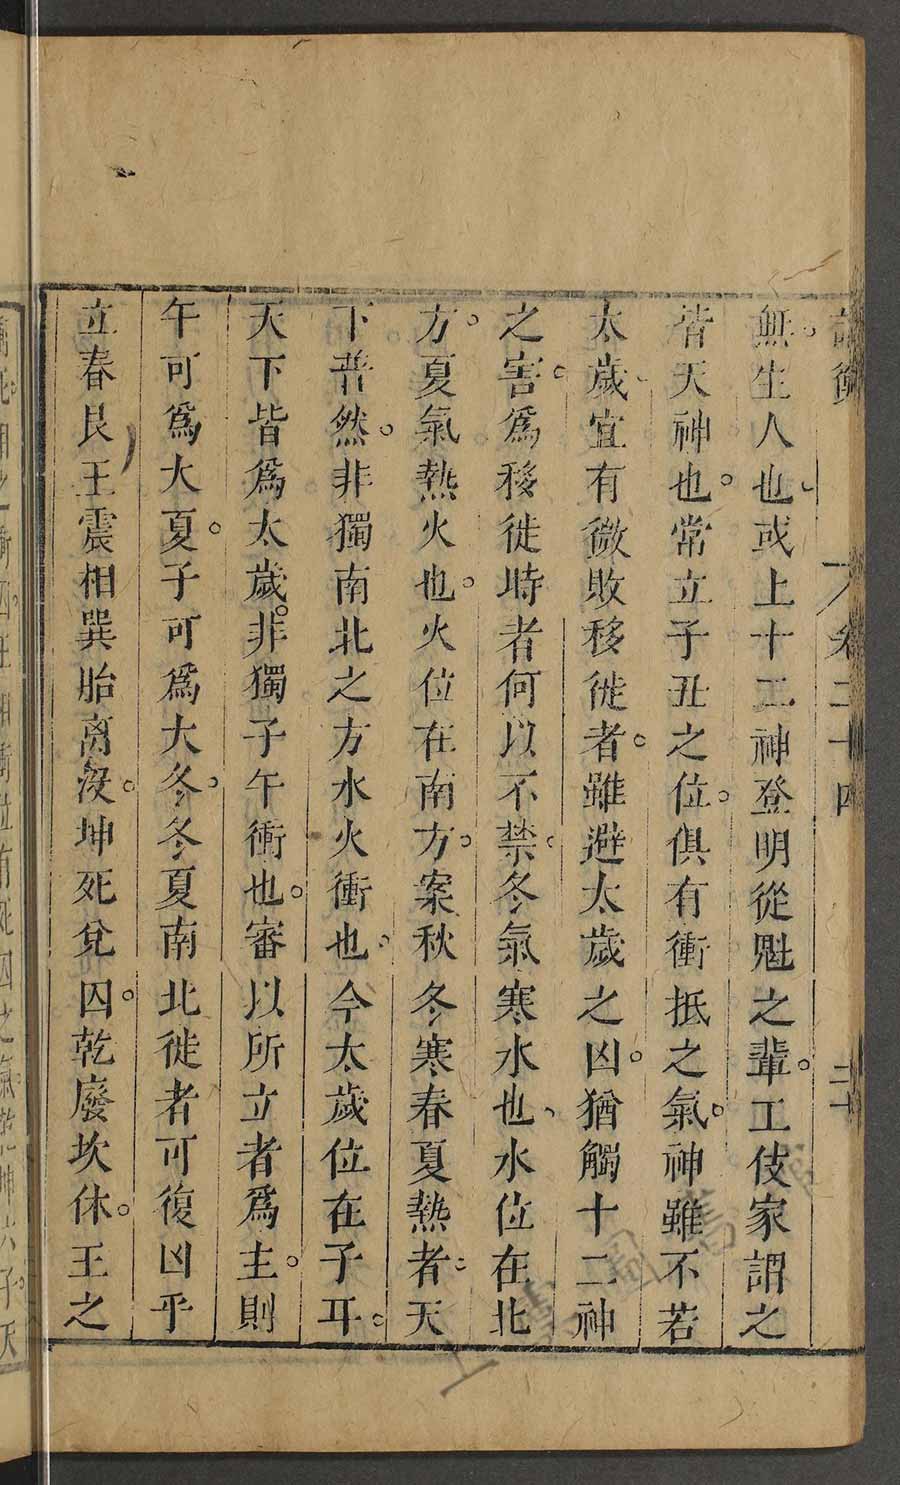 論衡 卷二十四 二十
無生人也或上十二神登明從魁之輩工伎家謂之
皆天神也常立子丑之位俱有衝抵之氣神雖不若
太歲宜有微敗移徙者雖避太歲之凶猶觸十二神
之害爲移徙時者何以不禁冬氣寒水也水位在北
方夏氣熱火也火位在南方案秋冬寒春夏熱者天
下普然非獨南北之方水火衝也今太歲位在子耳
天下皆爲太歲非獨子午衝也審以所立者爲主則
午可爲大夏子可爲大冬冬夏南北徙者可復凶乎
立春艮王震相巽胎离沒坤死兌囚乾廢坎休王之